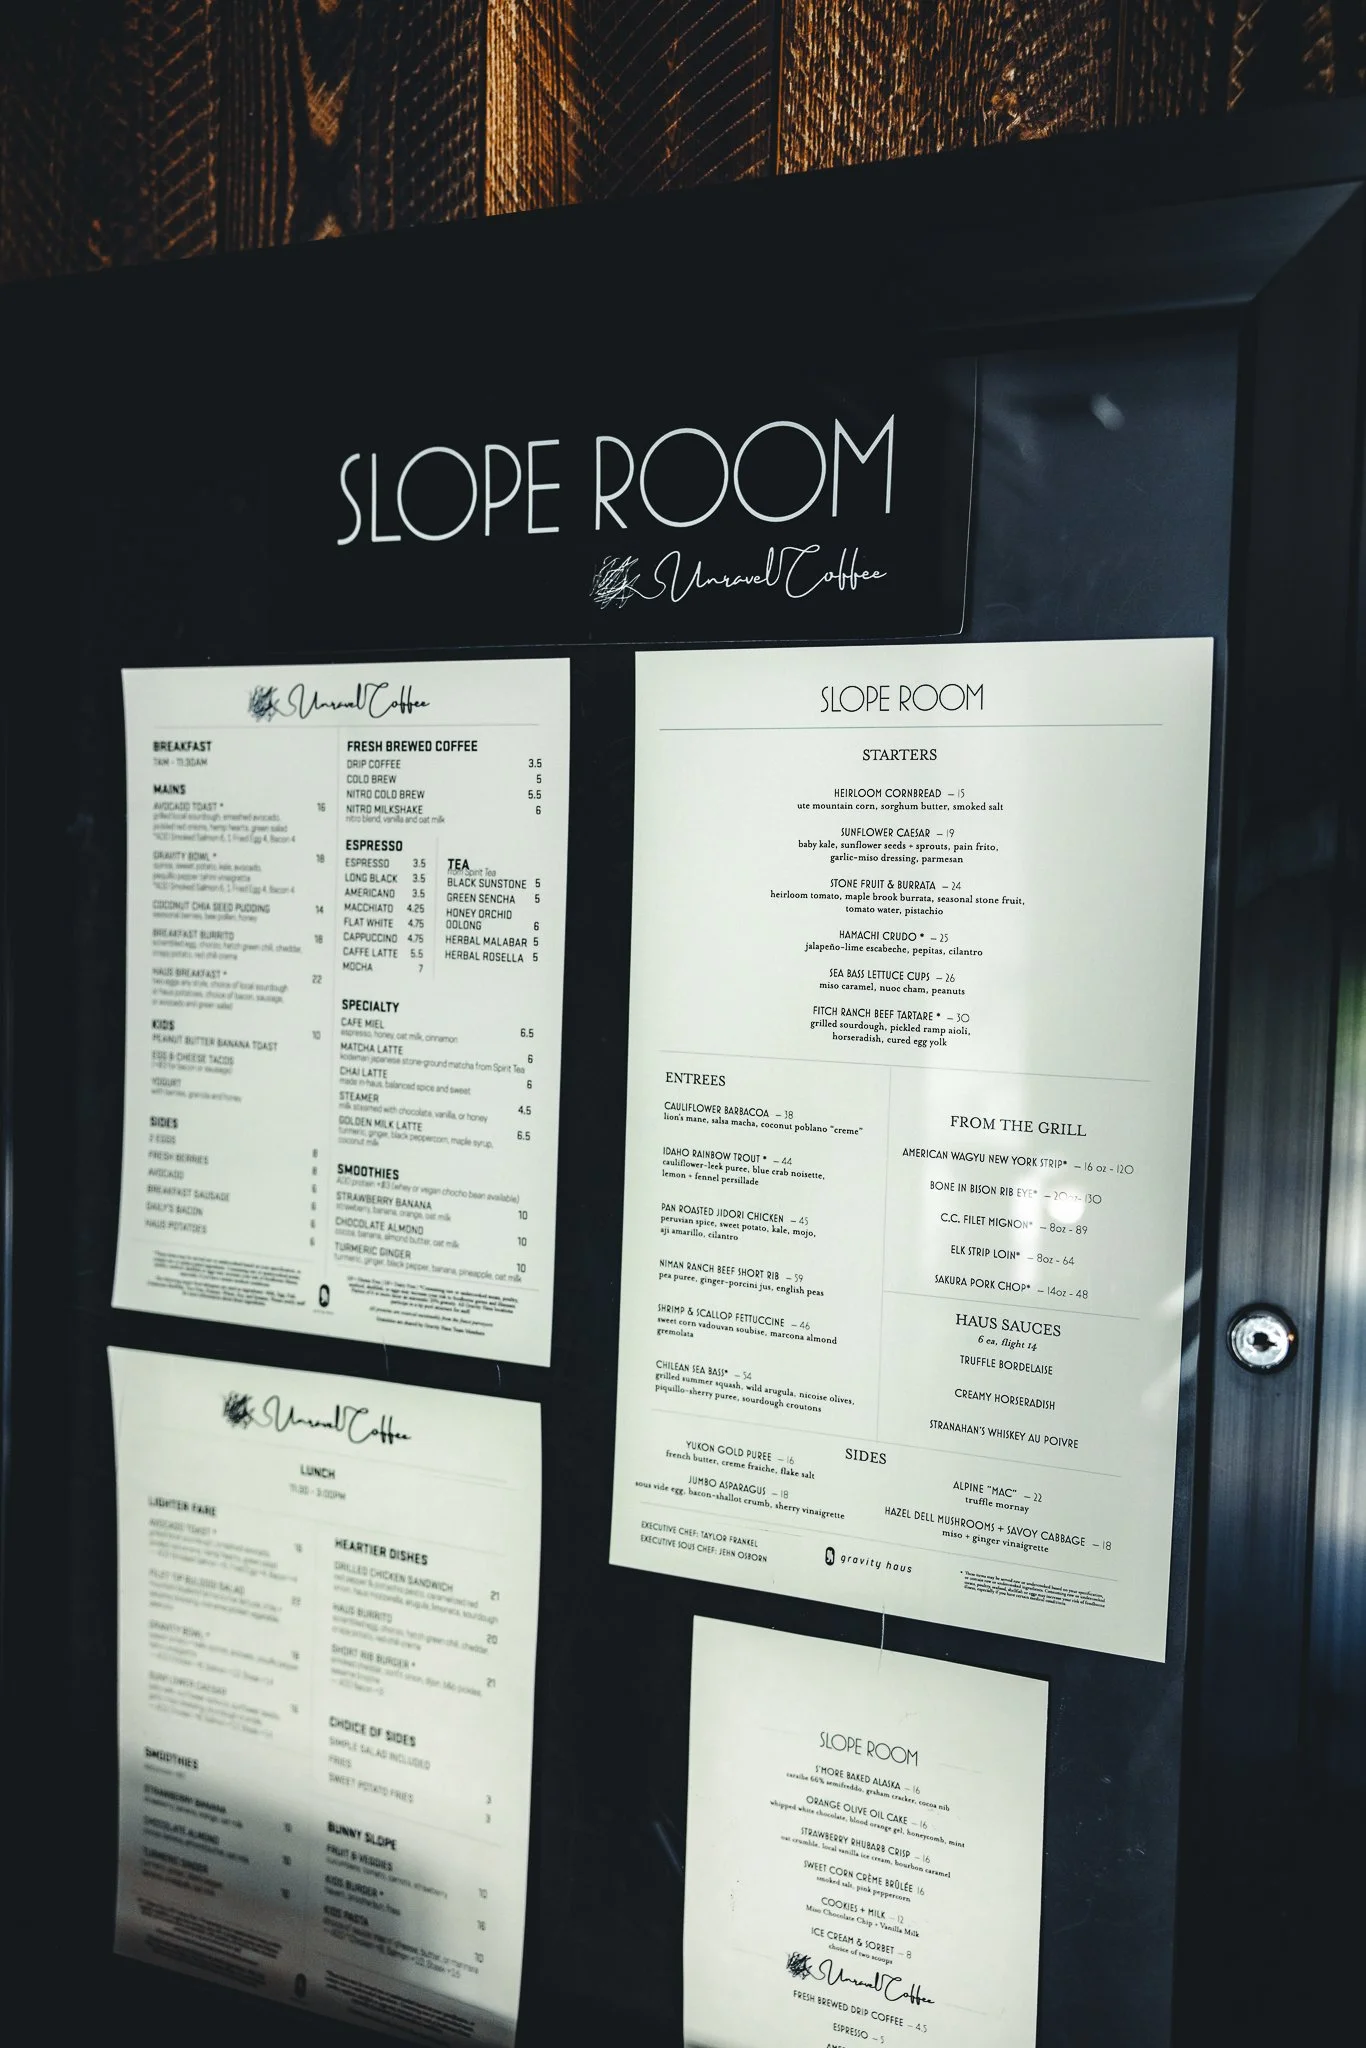 SLOPE ROOM
Unravel Coffee
Unravel Coffee
BREAKFAST
7AM - 11:30AM
MAINS
AVOCADO TOAST * 16
grilled local sourdough, smashed avocado,
pickled red onions, hemp hearts, green salad
*ADD Smoked Salmon 6, 1 Fried Egg 4, Bacon 4
GRAVITY BOWL * 18
quinoa, sweet potato, kale, avocado,
pequillo pepper tahini vinaigrette
*ADD Smoked Salmon 6, 1 Fried Egg 4, Bacon 4
COCONUT CHIA SEED PUDDING 14
seasonal berries, bee pollen, honey
BREAKFAST BURRITO 18
scrambled egg, chorizo, hatch green chili, cheddar,
crispy potato, red chili crema
HAUS BREAKFAST * 22
two eggs any style, choice of local sourdough
or haus potatoes, choice of bacon, sausage,
or avocado and green salad
KIDS
PEANUT BUTTER BANANA TOAST 10
EGG & CHEESE TACOS
(+$3 for bacon or sausage)
YOGURT
with berries, granola and honey
SIDES
2 EGGS 8
FRESH BERRIES 8
AVOCADO 6
BREAKFAST SAUSAGE 6
DAILY'S BACON 6
HAUS POTATOES 6
FRESH BREWED COFFEE
DRIP COFFEE 3.5
COLD BREW 5
NITRO COLD BREW 5.5
NITRO MILKSHAKE 6
nitro blend, vanilla and oat milk
ESPRESSO
ESPRESSO 3.5
LONG BLACK 3.5
AMERICANO 3.5
MACCHIATO 4.25
FLAT WHITE 4.75
CAPPUCCINO 4.75
CAFFE LATTE 5.5
MOCHA 7
TEA
from Spirit Tea
BLACK SUNSTONE 5
GREEN SENCHA 5
HONEY ORCHID
OOLONG 6
HERBAL MALABAR 5
HERBAL ROSELLA 5
SPECIALTY
CAFE MIEL 6.5
espresso, honey, oat milk, cinnamon
MATCHA LATTE 6
kodeman japanese stone-ground matcha from Spirit Tea
CHAI LATTE 6
made in-haus, balanced spice and sweet
STEAMER 4.5
milk steamed with chocolate, vanilla, or honey
GOLDEN MILK LATTE 6.5
turmeric, ginger, black peppercorn, maple syrup,
coconut milk
SMOOTHIES
ADD protein +$3 (whey or vegan chocho bean available)
STRAWBERRY BANANA 10
strawberry, banana, orange, oat milk
CHOCOLATE ALMOND 10
cocoa, banana, almond butter, oat milk
TURMERIC GINGER 10
turmeric, ginger, black pepper, banana, pineapple, oat milk
SLOPE ROOM
STARTERS
HEIRLOOM CORNBREAD – 15
ute mountain corn, sorghum butter, smoked salt
SUNFLOWER CAESAR – 19
baby kale, sunflower seeds + sprouts, pain frito,
garlic-miso dressing, parmesan
STONE FRUIT & BURRATA – 24
heirloom tomato, maple brook burrata, seasonal stone fruit,
tomato water, pistachio
HAMACHI CRUDO * – 25
jalapeño-lime escabeche, pepitas, cilantro
SEA BASS LETTUCE CUPS – 26
miso caramel, nuoc cham, peanuts
FITCH RANCH BEEF TARTARE * – 30
grilled sourdough, pickled ramp aioli,
horseradish, cured egg yolk
ENTREES
CAULIFLOWER BARBACOA – 38
lion's mane, salsa macha, coconut poblano "creme"
IDAHO RAINBOW TROUT * – 44
cauliflower-leek puree, blue crab noisette,
lemon + fennel persillade
PAN ROASTED JIDORI CHICKEN – 45
peruvian spice, sweet potato, kale, mojo,
aji amarillo, cilantro
NIMAN RANCH BEEF SHORT RIB – 59
pea puree, ginger-porcini jus, english peas
SHRIMP & SCALLOP FETTUCCINE – 46
sweet corn vadouvan soubise, marcona almond
gremolata
CHILEAN SEA BASS* – 54
grilled summer squash, wild arugula, nicoise olives,
piquillo-sherry puree, sourdough croutons
FROM THE GRILL
AMERICAN WAGYU NEW YORK STRIP* – 16 oz - 120
BONE IN BISON RIB EYE* – 20oz - 130
C.C. FILET MIGNON* – 8oz - 89
ELK STRIP LOIN* – 8oz - 64
SAKURA PORK CHOP* – 14oz - 48
HAUS SAUCES
6 ea, flight 14
TRUFFLE BORDELAISE
CREAMY HORSERADISH
STRANAHAN'S WHISKEY AU POIVRE
SIDES
YUKON GOLD PUREE – 16
french butter, creme fraiche, flake salt
JUMBO ASPARAGUS – 18
sous vide egg, bacon-shallot crumb, sherry vinaigrette
ALPINE "MAC" – 22
truffle mornay
HAZEL DELL MUSHROOMS + SAVOY CABBAGE – 18
miso + ginger vinaigrette
EXECUTIVE CHEF: TAYLOR FRANKEL
EXECUTIVE SOUS CHEF: JEHN OSBORN
gravity haus
Unravel Coffee
LUNCH
11:30 - 3:00PM
LIGHTER FARE
AVOCADO TOAST * 16
GRAVITY BOWL * 18
SUNFLOWER CAESAR 16
SMOOTHIES
STRAWBERRY BANANA 10
CHOCOLATE ALMOND 10
TURMERIC GINGER 10
HEARTIER DISHES
GRILLED CHICKEN SANDWICH 21
HAUS BURRITO 20
scrambled egg, chorizo, hatch green chili, cheddar
crispy potato, red chili crema
SHORT RIB BURGER * 21
CHOICE OF SIDES
SIMPLE SALAD INCLUDED
FRIES 3
SWEET POTATO FRIES 3
BUNNY SLOPE
FRUIT & VEGGIES 10
KIDS BURGER * 16
KIDS PASTA 10
SLOPE ROOM
S'MORE BAKED ALASKA – 16
caraibe 66% semifreddo, graham cracker, cocoa nib
ORANGE OLIVE OIL CAKE – 16
whipped white chocolate, blood orange gel, honeycomb, mint
STRAWBERRY RHUBARB CRISP – 16
oat crumble, local vanilla ice cream, bourbon caramel
SWEET CORN CRÈME BRÛLÉE 16
smoked salt, pink peppercorn
COOKIES + MILK – 12
Miso Chocolate Chip + Vanilla Milk
ICE CREAM & SORBET – 8
choice of two scoops
Unravel Coffee
FRESH BREWED DRIP COFFEE – 4.5
ESPRESSO – 5